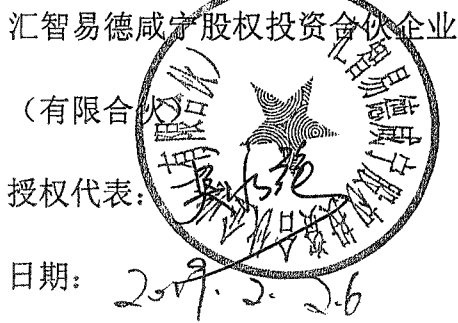 汇智易德咸宁股权投资合伙企业
（有限合伙）
授权代表：
日期： 2019.2.26
汇智易德咸宁股权投资合伙企业（有限合伙）